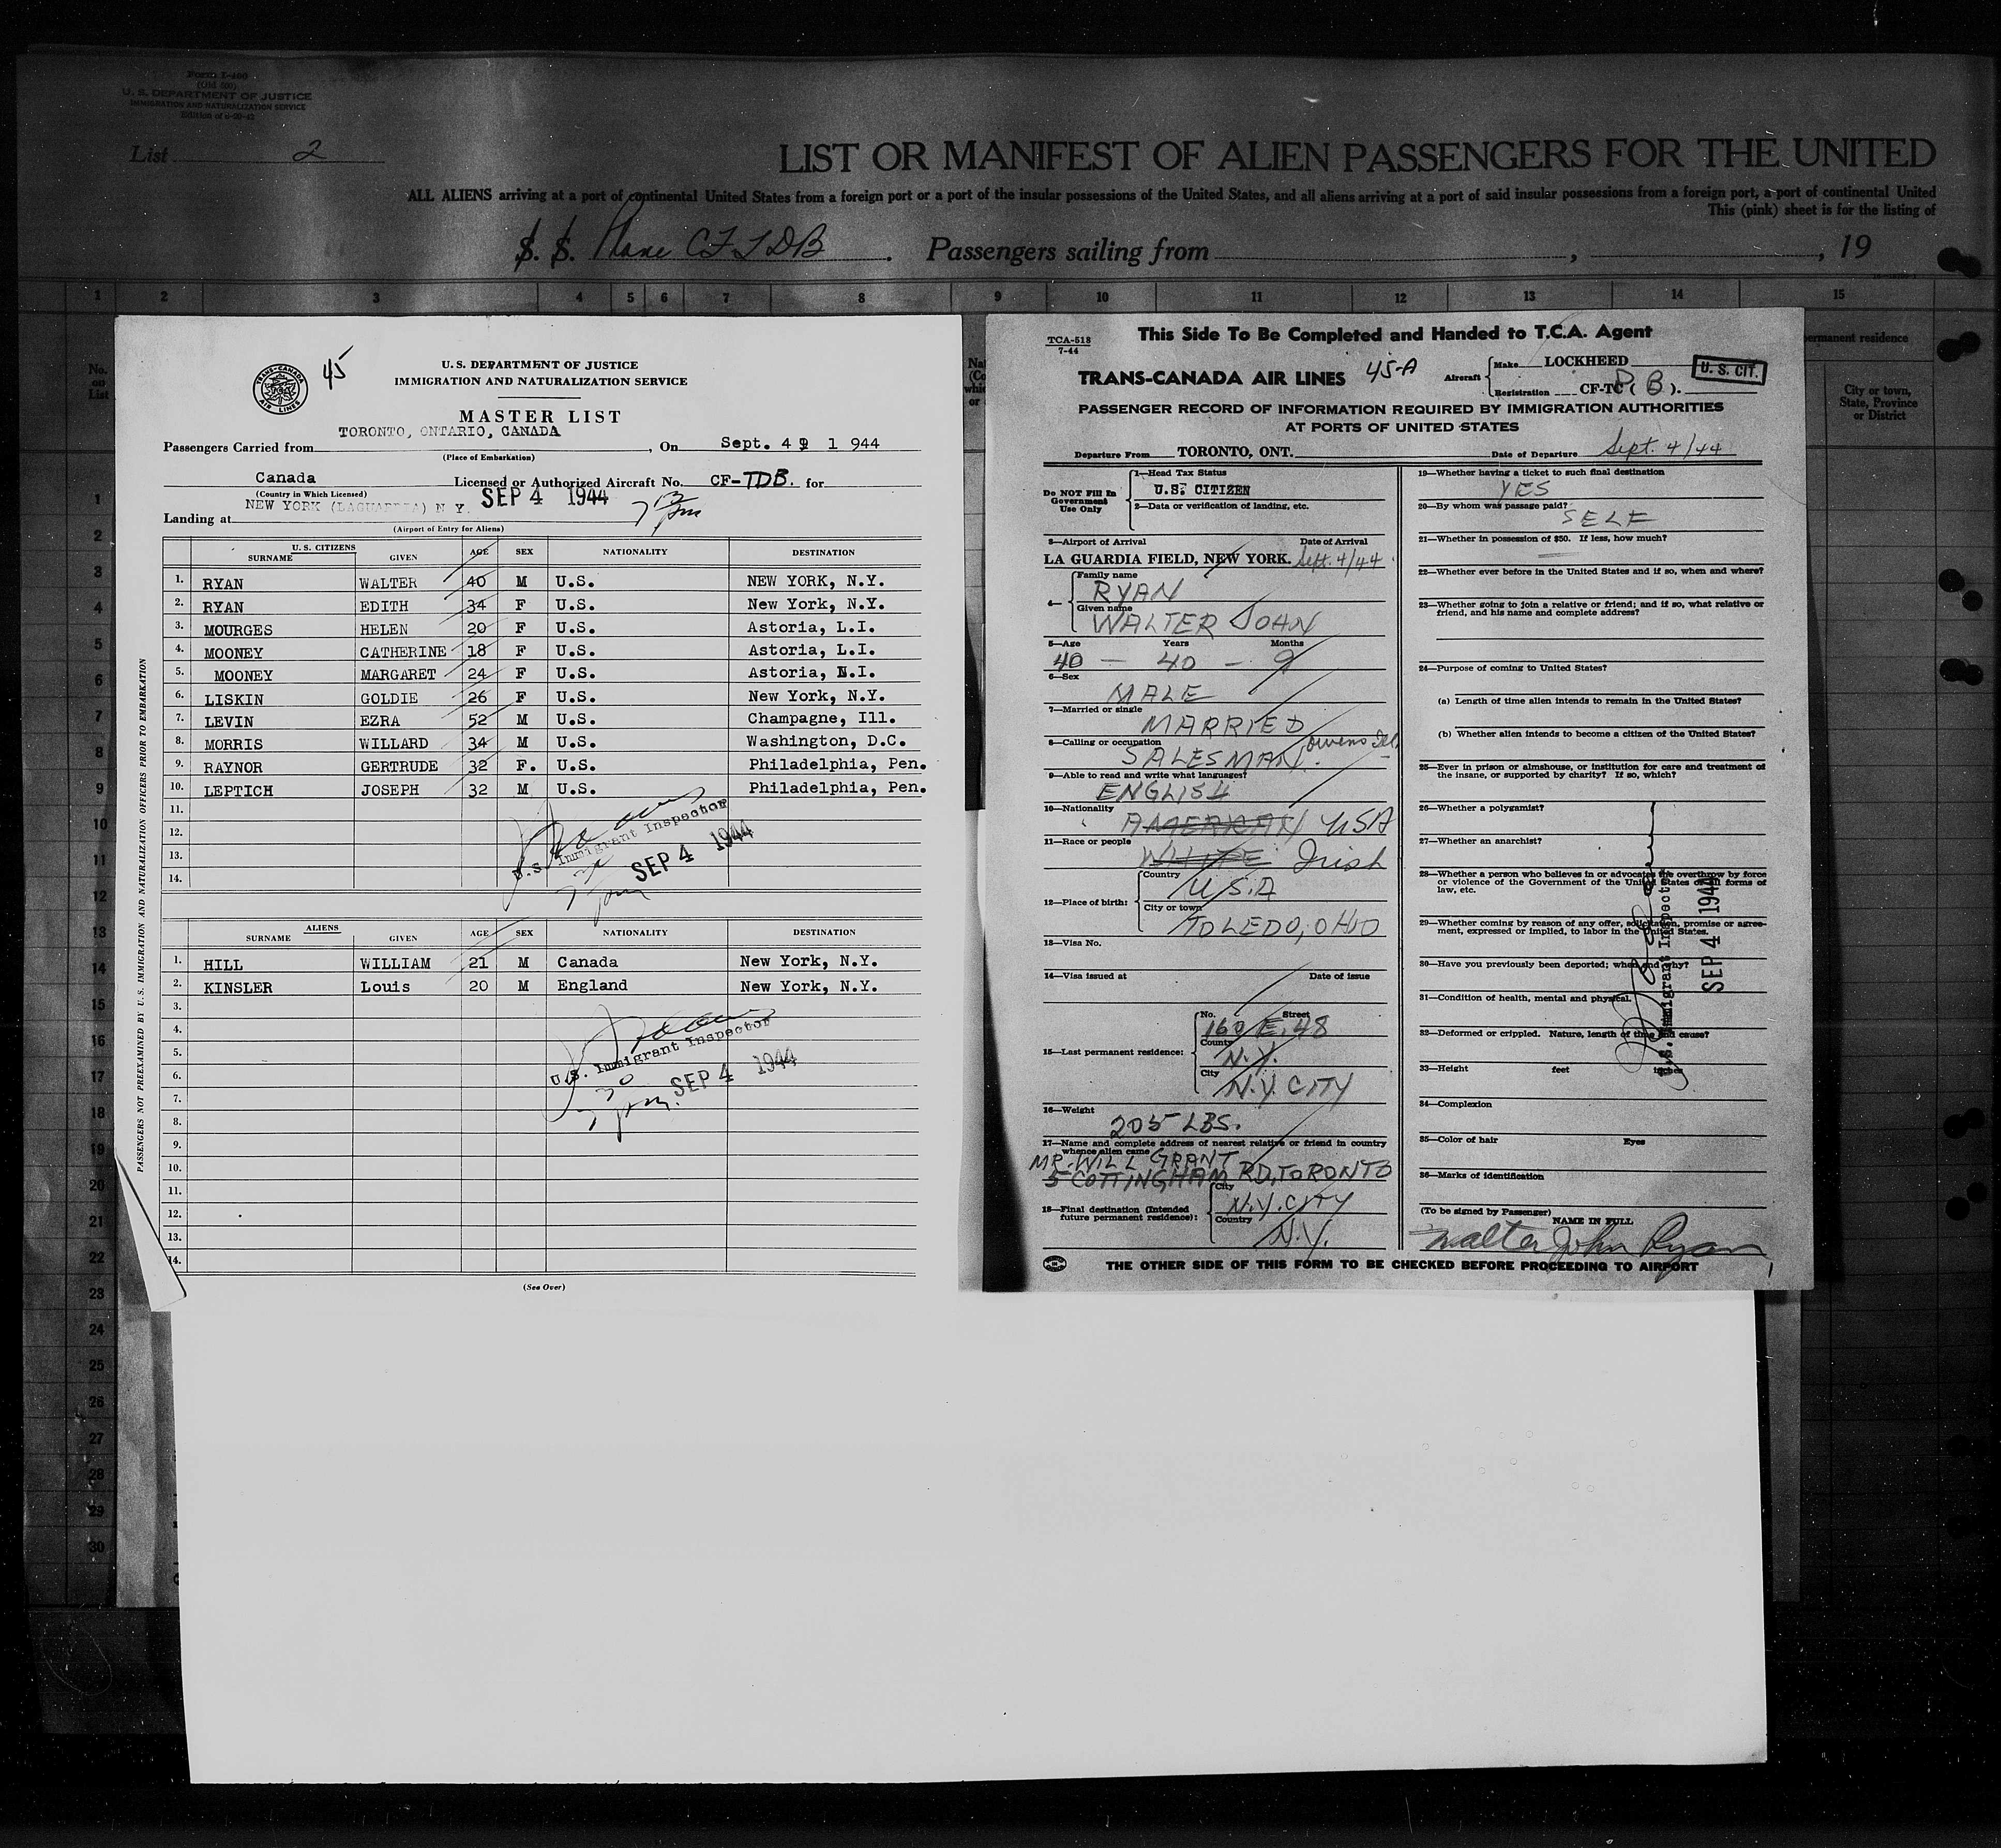 Form I-460
(Old 500)
U. S. DEPARTMENT OF JUSTICE
IMMIGRATION AND NATURALIZATION SERVICE
List 2
LIST OR MANIFEST OF ALIEN PASSENGERS FOR THE UNITED
ALL ALIENS arriving at a port of continental United States from a foreign port or a port of the insular possessions of the United States, and all aliens arriving at a port of said insular possessions from a foreign port, a port of continental United
This (pink) sheet is for the listing of
S. S. Plane CFTDB. Passengers sailing from , , 19
1 2 3 4 5 6 7 8 9 10 11 12 13 14 15
No. on List
ermanent residence
City or town, State, Province or District
1
2
3
4
5
6
7
8
9
10
11
12
13
14
15
16
17
18
19
20
21
22
23
24
25
26
27
28
29
30
TRANS-CANADA AIR LINES
45
U.S. DEPARTMENT OF JUSTICE
IMMIGRATION AND NATURALIZATION SERVICE
MASTER LIST
Passengers Carried from TORONTO, ONTARIO, CANADA, On Sept. 4 1 944
(Place of Embarkation)
Canada Licensed or Authorized Aircraft No. CF-TDB. for
(Country in Which Licensed)
SEP 4 1944
Landing at NEW YORK (LAGUARDIA) N Y.
(Airport of Entry for Aliens)
U.S. CITIZENS
SURNAME GIVEN AGE SEX NATIONALITY DESTINATION
1. RYAN WALTER 40 M U.S. NEW YORK, N.Y.
2. RYAN EDITH 34 F U.S. New York, N.Y.
3. MOURGES HELEN 20 F U.S. Astoria, L.I.
4. MOONEY CATHERINE 18 F U.S. Astoria, L.I.
5. MOONEY MARGARET 24 F U.S. Astoria, L.I.
6. LISKIN GOLDIE 26 F U.S. New York, N.Y.
7. LEVIN EZRA 52 M U.S. Champagne, Ill.
8. MORRIS WILLARD 34 M U.S. Washington, D.C.
9. RAYNOR GERTRUDE 32 F. U.S. Philadelphia, Pen.
10. LEPTICH JOSEPH 32 M U.S. Philadelphia, Pen.
11.
12.
13.
14.
U.S. Immigrant Inspector
SEP 4 1944
ALIENS
SURNAME GIVEN AGE SEX NATIONALITY DESTINATION
1. HILL WILLIAM 21 M Canada New York, N.Y.
2. KINSLER Louis 20 M England New York, N.Y.
3.
4.
5.
6.
7.
8.
9.
10.
11.
12.
13.
14.
U.S. Immigrant Inspector
SEP 4 1944
7 30 pm.
(See Over)
PASSENGERS NOT PREEXAMINED BY U.S. IMMIGRATION AND NATURALIZATION OFFICERS PRIOR TO EMBARKATION
TCA-518
7-44
This Side To Be Completed and Handed to T.C.A. Agent
TRANS-CANADA AIR LINES 45-A
Aircraft Make LOCKHEED
Registration CF-TC ( B ).
U. S. CIT.
PASSENGER RECORD OF INFORMATION REQUIRED BY IMMIGRATION AUTHORITIES
AT PORTS OF UNITED STATES
Departure From TORONTO, ONT. Date of Departure Sept. 4/44
Do NOT Fill In Government Use Only
1—Head Tax Status
U.S. CITIZEN
2—Data or verification of landing, etc.
3—Airport of Arrival Date of Arrival
LA GUARDIA FIELD, NEW YORK. Sept. 4/44
4— Family name
RYAN
Given name
WALTER JOHN
5—Age Years Months
40 — 40 — 9
6—Sex
MALE
7—Married or single
MARRIED
8—Calling or occupation
SALESMAN.
9—Able to read and write what languages?
ENGLISH
10—Nationality
AMERICAN USA
11—Race or people
WHITE Irish
12—Place of birth: Country
U.S.A
City or town
TOLEDO, OHIO
13—Visa No.
14—Visa issued at Date of issue
15—Last permanent residence: No. Street
160 E. 48
County
N.Y.
City
N.Y. CITY
16—Weight
205 LBS.
17—Name and complete address of nearest relative or friend in country whence alien came
MR. WILL GRANT
5 COTTINGHAM RD, TORONTO
18—Final destination (Intended future permanent residence): City
N.Y. CITY
Country
N.Y.
19—Whether having a ticket to such final destination
YES
20—By whom was passage paid?
SELF
21—Whether in possession of $50. If less, how much?
22—Whether ever before in the United States and if so, when and where?
23—Whether going to join a relative or friend; and if so, what relative or friend, and his name and complete address?
24—Purpose of coming to United States?
(a) Length of time alien intends to remain in the United States?
(b) Whether alien intends to become a citizen of the United States?
25—Ever in prison or almshouse, or institution for care and treatment of the insane, or supported by charity? If so, which?
26—Whether a polygamist?
27—Whether an anarchist?
28—Whether a person who believes in or advocates the overthrow by force or violence of the Government of the United States or all forms of law, etc.
29—Whether coming by reason of any offer, solicitation, promise or agreement, expressed or implied, to labor in the United States.
30—Have you previously been deported; when and why?
31—Condition of health, mental and physical.
32—Deformed or crippled. Nature, length of time and cause?
33—Height feet inches
34—Complexion
35—Color of hair Eyes
36—Marks of identification
U.S. Immigrant Inspector
SEP 4 1944
(To be signed by Passenger)
NAME IN FULL
Walter John Ryan
THE OTHER SIDE OF THIS FORM TO BE CHECKED BEFORE PROCEEDING TO AIRPORT